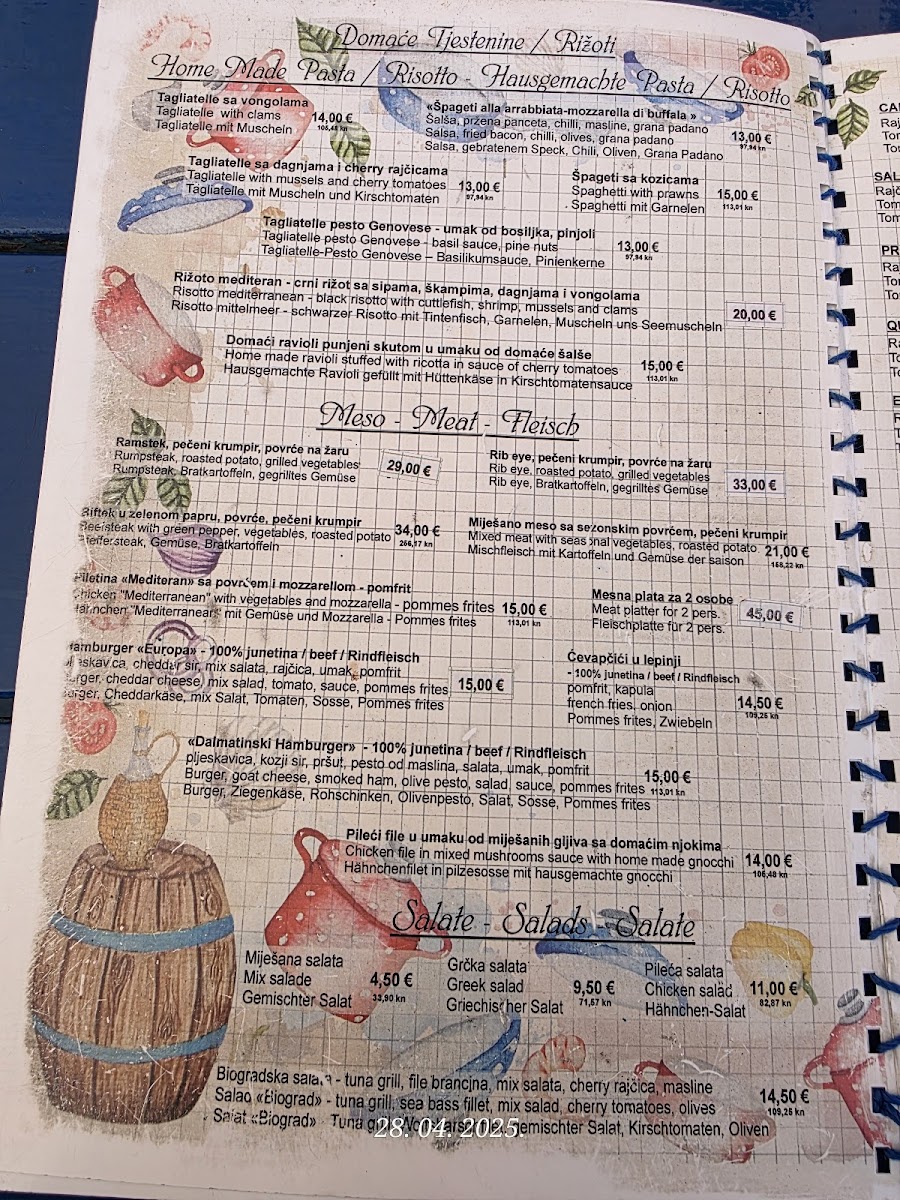 Domaće Tjestenine / Rižoti
Home Made Pasta / Risotto - Hausgemachte Pasta / Risotto
Tagliatelle sa vongolama
Tagliatelle with clams
Tagliatelle mit Muscheln
14,00 €
106,48 kn
«Špageti alla arrabbiata-mozzarella di buffala »
Šalša, pržena panceta, chilli, masline, grana padano
Salsa, fried bacon, chilli, olives, grana padano
Salsa, gebratenem Speck, Chili, Oliven, Grana Padano
13,00 €
97,94 kn
Tagliatelle sa dagnjama i cherry rajčicama
Tagliatelle with mussels and cherry tomatoes
Tagliatelle mit Muscheln und Kirschtomaten
13,00 €
97,94 kn
Špageti sa kozicama
Spaghetti with prawns
Spaghetti mit Garnelen
15,00 €
113,01 kn
Tagliatelle pesto Genovese - umak od bosiljka, pinjoli
Tagliatelle pesto Genovese - basil sauce, pine nuts
Tagliatelle-Pesto Genovese – Basilikumsauce, Pinienkerne
13,00 €
97,94 kn
Rižoto mediteran - crni rižot sa sipama, škampima, dagnjama i vongolama
Risotto mediterranean - black risotto with cuttlefish, shrimp, mussels and clams
Risotto mittelmeer - schwarzer Risotto mit Tintenfisch, Garnelen, Muscheln uns Seemuscheln
20,00 €
Domaći ravioli punjeni skutom u umaku od domaće šalše
Home made ravioli stuffed with ricotta in sauce of cherry tomatoes
Hausgemachte Ravioli gefüllt mit Hüttenkäse in Kirschtomatensauce
15,00 €
113,01 kn
Meso - Meat - Fleisch
Ramstek, pečeni krumpir, povrće na žaru
Rumpsteak, roasted potato, grilled vegetables
Rumpsteak, Bratkartoffeln, gegrilltes Gemüse
29,00 €
Rib eye, pečeni krumpir, povrće na žaru
Rib eye, roasted potato, grilled vegetables
Rib eye, Bratkartoffeln, gegrilltes Gemüse
33,00 €
Biftek u zelenom papru, povrće, pečeni krumpir
Beefsteak with green pepper, vegetables, roasted potato
Pfeffersteak, Gemüse, Bratkartoffeln
34,00 €
256,17 kn
Miješano meso sa sezonskim povrćem, pečeni krumpir
Mixed meat with seasonal vegetables, roasted potato
Mischfleisch mit Kartoffeln und Gemüse der saison
21,00 €
158,22 kn
Piletina «Mediteran» sa povrćem i mozzarellom - pomfrit
Chicken "Mediterranean" with vegetables and mozzarella - pommes frites
Hähnchen "Mediterranean" mit Gemüse und Mozzarella - Pommes frites
15,00 €
113,01 kn
Mesna plata za 2 osobe
Meat platter for 2 pers.
Fleischplatte für 2 pers.
45,00 €
Hamburger «Europa» - 100% junetina / beef / Rindfleisch
pljeskavica, cheddar sir, mix salata, rajčica, umak, pomfrit
Burger, cheddar cheese, mix salad, tomato, sauce, pommes frites
Burger, Cheddarkäse, mix Salat, Tomaten, Sosse, Pommes frites
15,00 €
Ćevapčići u lepinji
- 100% junetina / beef / Rindfleisch
pomfrit, kapula
french fries, onion
Pommes frites, Zwiebeln
14,50 €
109,25 kn
«Dalmatinski Hamburger» - 100% junetina / beef / Rindfleisch
pljeskavica, kozji sir, pršut, pesto od maslina, salata, umak, pomfrit
Burger, goat cheese, smoked ham, olive pesto, salad, sauce, pommes frites
Burger, Ziegenkäse, Rohschinken, Olivenpesto, Salat, Sosse, Pommes frites
15,00 €
113,01 kn
Pileći file u umaku od miješanih gljiva sa domaćim njokima
Chicken file in mixed mushrooms sauce with home made gnocchi
Hähnchenfilet in pilzesosse mit hausgemachte gnocchi
14,00 €
106,48 kn
Salate - Salads - Salate
Miješana salata
Mix salade
Gemischter Salat
4,50 €
33,90 kn
Grčka salata
Greek salad
Griechischer Salat
9,50 €
71,57 kn
Pileća salata
Chicken salad
Hähnchen-Salat
11,00 €
82,87 kn
Biogradska salata - tuna grill, file brancina, mix salata, cherry rajčica, masline
Salad «Biograd» - tuna grill, sea bass fillet, mix salad, cherry tomatoes, olives
Salat «Biograd» - Tuna gemischter Salat, Kirschtomaten, Oliven
14,50 €
109,25 kn
28. 04. 2025.